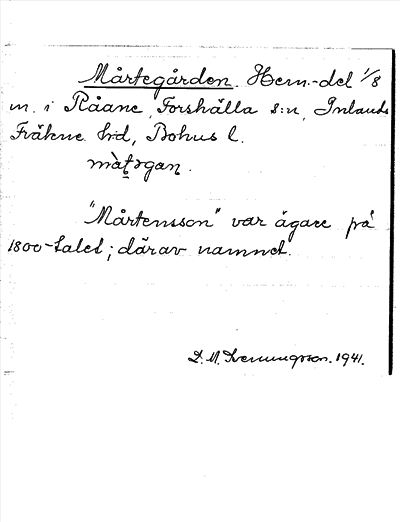 Mårtegården. Hem.-del 1/8
m. i Råane, Forshälla s:n, Inlands
Fräkne hd, Bohus l.
màt̯əgan.
"Mårtensson" var ägare på
1800-talet; därav namnet.
D. M. Swenungsson. 1941.